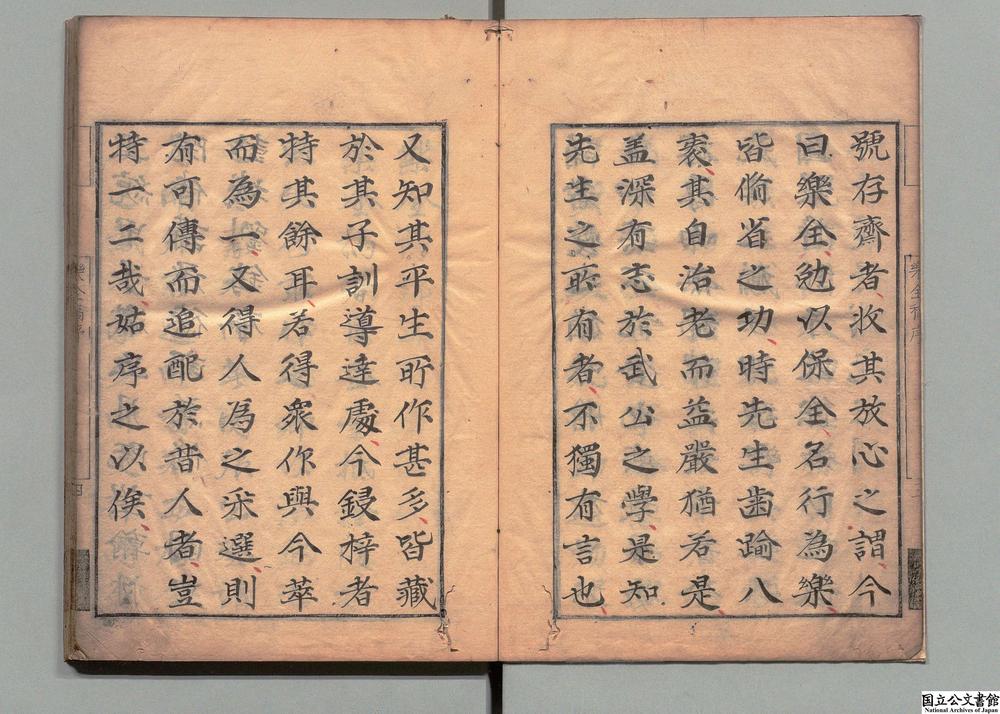 號存齋者收其放心之謂今
曰樂全勉以保全名行為樂
皆脩省之功時先生歯踰八
袠其自治老而益嚴猶若是
盖深有志於武公之學是知
先生之所有者不獨有言也
又知其平生所作甚多皆藏
於其子訓導逹處今鋟梓者
特其餘耳若得衆作與今萃
而為一又得人為之采選則
有可傳而追配於昔人者豈
特一二哉姑序之以俟
国立公文書館
National Archives of Japan